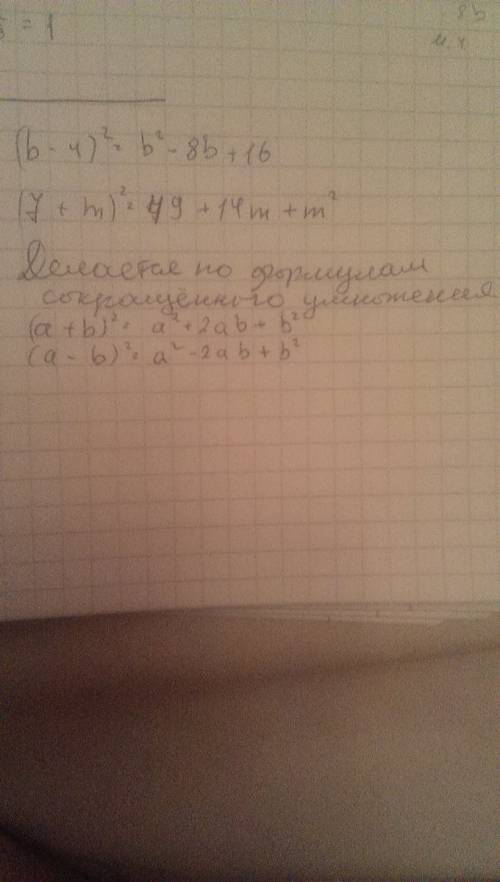 = 1
8b
(b - 4)² = b² - 8b + 16
(7 + m)² = 49 + 14m + m²
Делается по формулам
сокращённого умножения
(a + b)² = a² + 2ab + b²
(a - b)² = a² - 2ab + b²